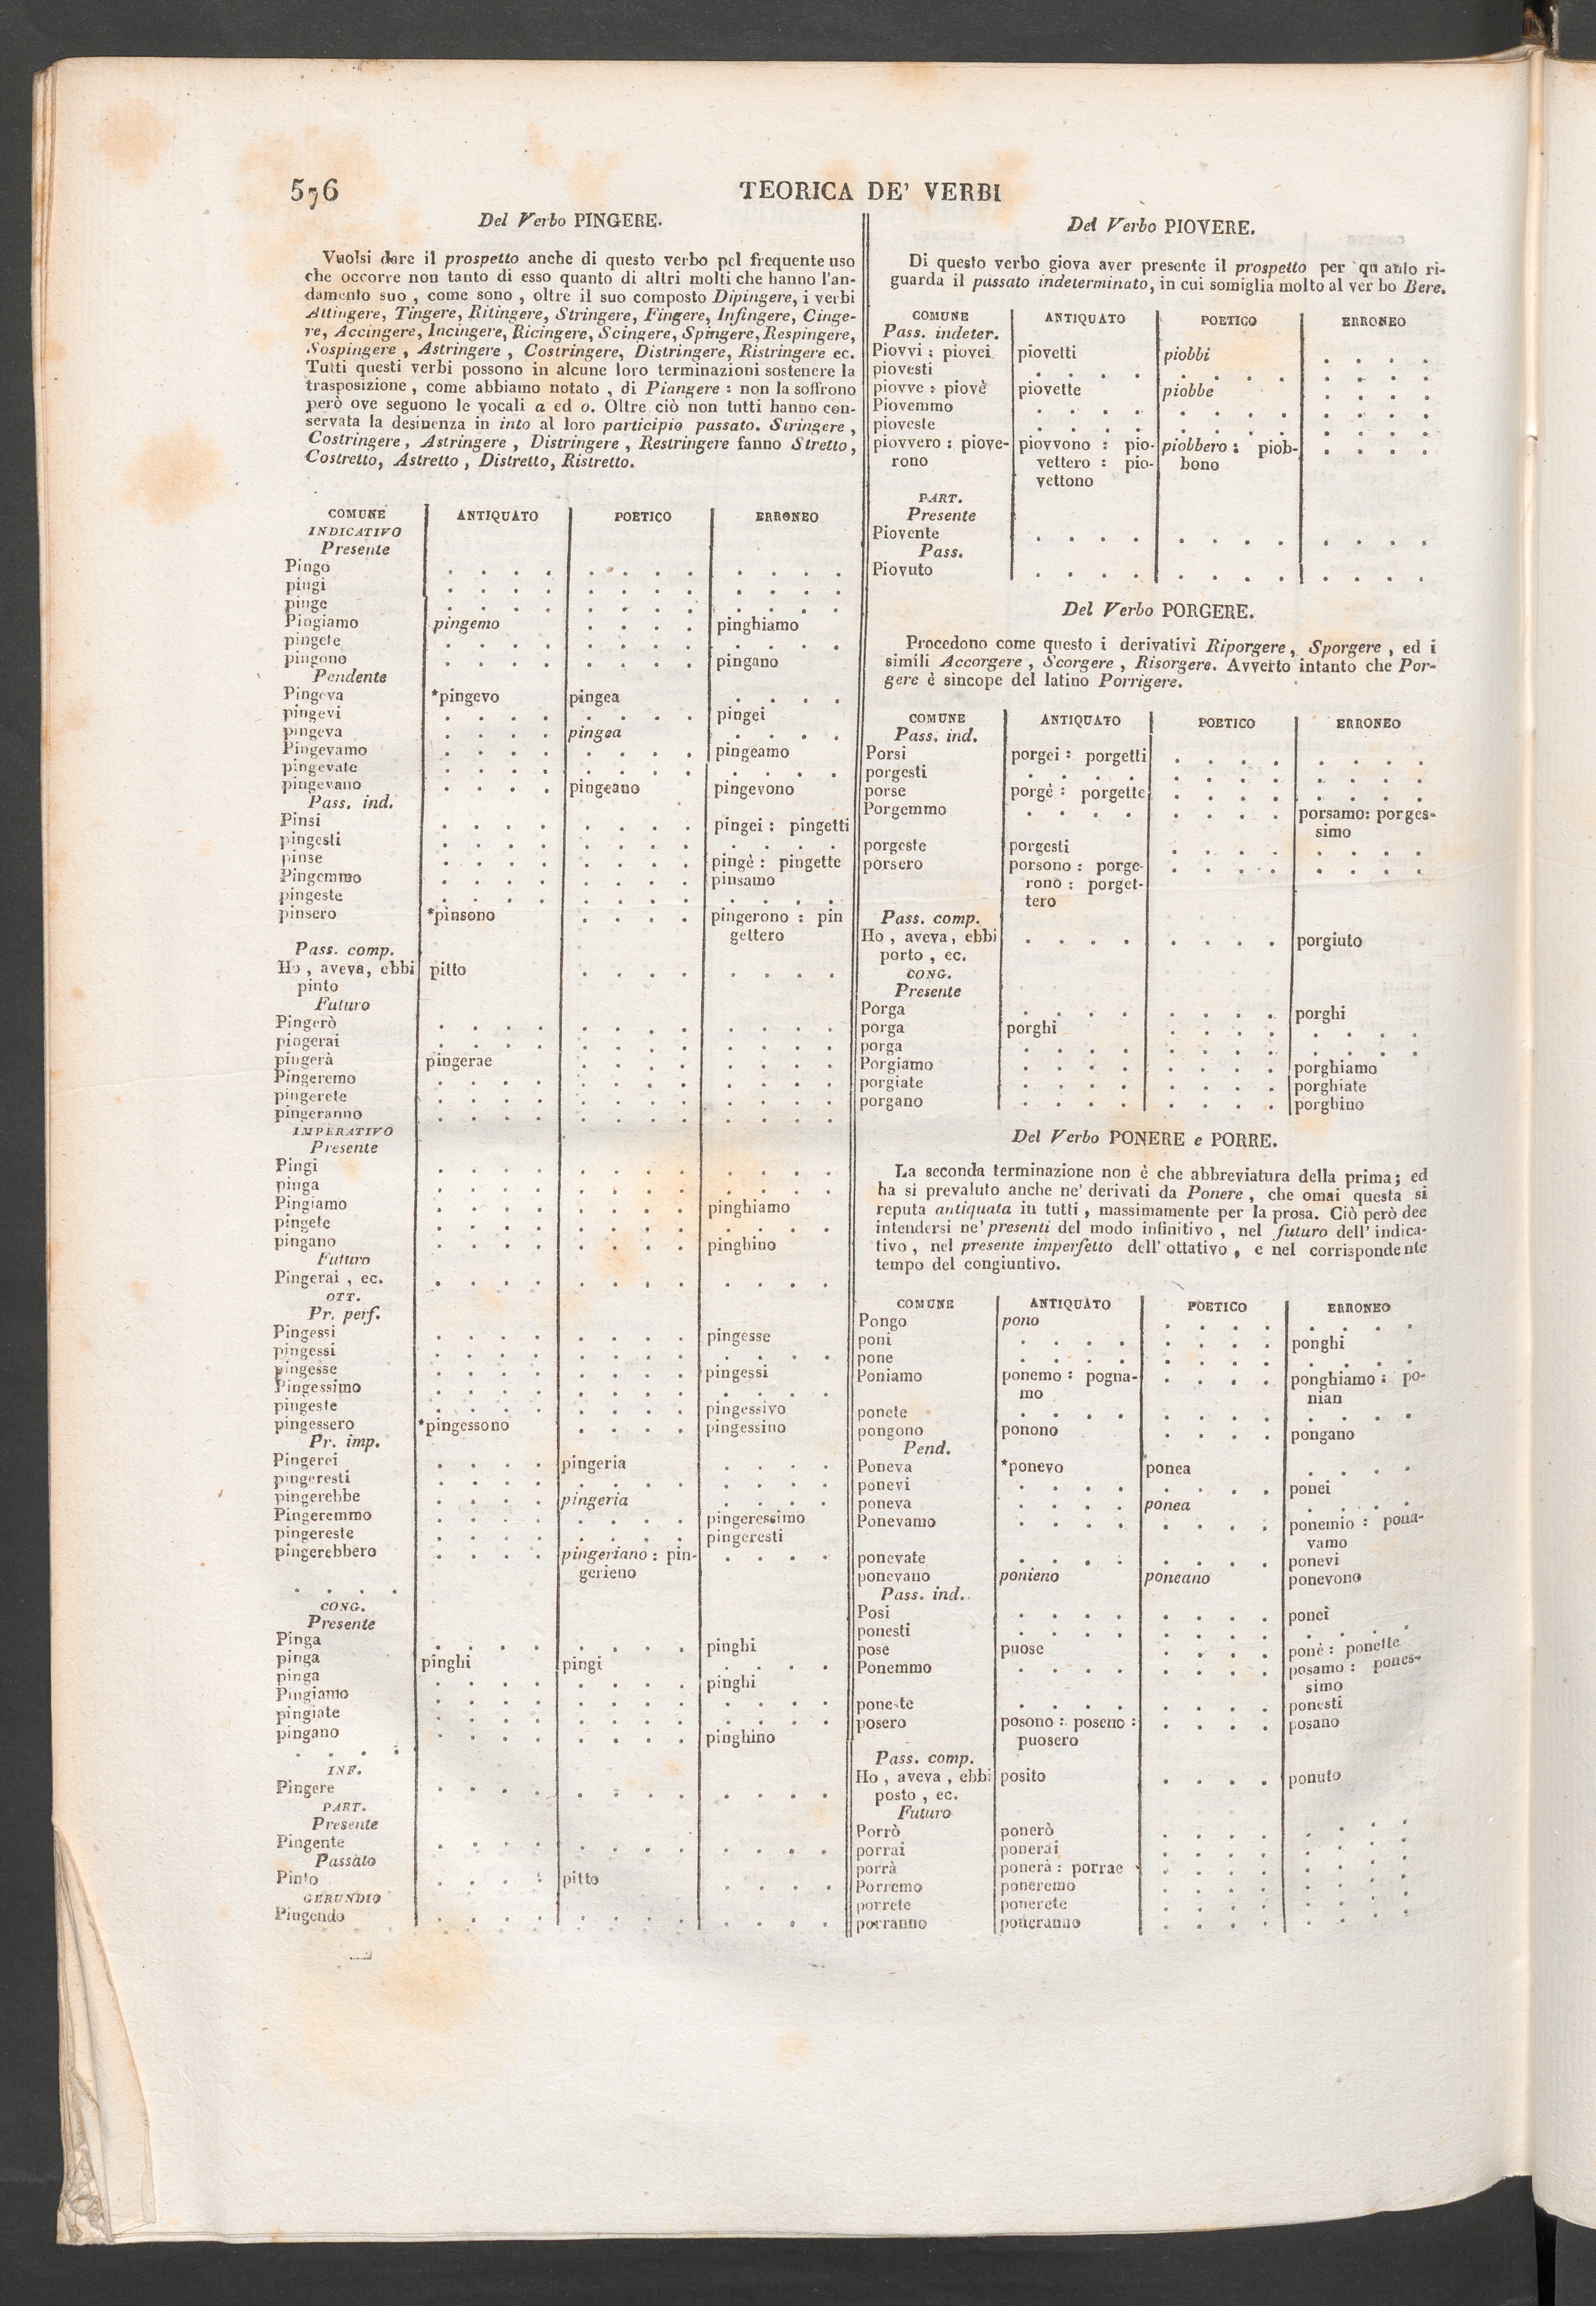 576 TEORICA DE' VERBI
Del Verbo PINGERE.
Vuolsi dare il prospetto anche di questo verbo pel frequente uso
che occorre non tanto di esso quanto di altri molti che hanno l'an-
damento suo, come sono, oltre il suo composto Dipingere, i verbi
Attingere, Tingere, Ritingere, Stringere, Fingere, Infingere, Cinge-
re, Accingere, Incingere, Ricingere, Scingere, Spingere, Respingere,
Sospingere, Astringere, Costringere, Distringere, Ristringere ec.
Tutti questi verbi possono in alcune loro terminazioni sostenere la
trasposizione, come abbiamo notato, di Piangere: non la soffrono
però ove seguono le vocali a ed o. Oltre ciò non tutti hanno con-
servata la desinenza in into al loro participio passato. Stringere,
Costringere, Astringere, Distringere, Restringere fanno Stretto,
Costretto, Astretto, Distretto, Ristretto.
COMUNE ANTIQUATO POETICO ERRONEO
INDICATIVO
Presente
Pingo . . . . . . . . . . . .
pingi . . . . . . . . . . . .
pinge . . . . . . . . . . . .
Pingiamo pingemo . . . . pinghiamo
pingete . . . . . . . . . . . .
pingono . . . . . . . . pingano
Pendente
Pingeva *pingevo pingea . . . .
pingevi . . . . . . . . pingei
pingeva . . . . pingea . . . .
Pingevamo . . . . . . . . pingeamo
pingevate . . . . . . . . . . . .
pingevano . . . . pingeano pingevono
Pass. ind.
Pinsi . . . . . . . . pingei : pingetti
pingesti . . . . . . . . . . . .
pinse . . . . . . . . pingè : pingette
Pingemmo . . . . . . . . pinsamo
pingeste . . . . . . . . . . . .
pinsero *pinsono . . . . pingerono : pin
gettero
Pass. comp.
Ho, aveva, ebbi pitto . . . . . . . .
pinto
Futuro
Pingerò . . . . . . . . . . . .
pingerai . . . . . . . . . . . .
pingerà pingerae . . . . . . . .
Pingeremo . . . . . . . . . . . .
pingerete . . . . . . . . . . . .
pingeranno . . . . . . . . . . . .
IMPERATIVO
Presente
Pingi . . . . . . . . . . . .
pinga . . . . . . . . . . . .
Pingiamo . . . . . . . . pinghiamo
pingete . . . . . . . . . . . .
pingano . . . . . . . . pinghino
Futuro
Pingerai, ec. . . . . . . . . . . . .
OTT.
Pr. perf.
Pingessi . . . . . . . . pingesse
pingessi . . . . . . . . . . . .
pingesse . . . . . . . . pingessi
Pingessimo . . . . . . . . . . . .
pingeste . . . . . . . . pingessivo
pingessero *pingessono . . . . pingessino
Pr. imp.
Pingerei . . . . pingeria . . . .
pingeresti . . . . . . . . . . . .
pingerebbe . . . . pingeria . . . .
Pingeremmo . . . . . . . . pingeressimo
pingereste . . . . . . . . pingeresti
pingerebbero . . . . pingeriano : pin- . . . .
gerieno
. . . .
CONG.
Presente
Pinga . . . . . . . . pinghi
pinga pinghi pingi . . . .
pinga . . . . . . . . pinghi
Pingiamo . . . . . . . . . . . .
pingiate . . . . . . . . . . . .
pingano . . . . . . . . pinghino
. . . .
INF.
Pingere . . . . . . . . . . . .
PART.
Presente
Pingente . . . . . . . . . . . .
Passato
Pinto . . . . pitto . . . .
GERUNDIO
Pingendo . . . . . . . . . . . .
Del Verbo PIOVERE.
Di questo verbo giova aver presente il prospetto per quanto ri-
guarda il passato indeterminato, in cui somiglia molto al ver bo Bere.
COMUNE ANTIQUATO POETICO ERRONEO
Pass. indeter.
Piovvi : piovei piovetti piobbi . . . .
piovesti . . . . . . . . . . . .
piovve : piovè piovette piobbe . . . .
Piovemmo . . . . . . . . . . . .
pioveste . . . . . . . . . . . .
piovvero : piove- piovvono : pio- piobbero : piob- . . . .
rono vettero : pio- bono
vettono
PART.
Presente
Piovente . . . . . . . . . . . .
Pass.
Piovuto . . . . . . . . . . . .
Del Verbo PORGERE.
Procedono come questo i derivativi Riporgere, Sporgere, ed i
simili Accorgere, Scorgere, Risorgere. Avverto intanto che Por-
gere è sincope del latino Porrigere.
COMUNE ANTIQUATO POETICO ERRONEO
Pass. ind.
Porsi porgei : porgetti . . . . . . . .
porgesti . . . . . . . . . . . .
porse porgè : porgette . . . . . . . .
Porgemmo . . . . . . . . porsamo: porges-
simo
porgeste porgesti . . . . . . . .
porsero porsono : porge- . . . . . . . .
rono : porget-
tero
Pass. comp.
Ho, aveva, ebbi . . . . . . . . porgiuto
porto, ec.
CONG.
Presente
Porga . . . . . . . . porghi
porga porghi . . . . . . . .
porga . . . . . . . . . . . .
Porgiamo . . . . . . . . porghiamo
porgiate . . . . . . . . porghiate
porgano . . . . . . . . porghino
Del Verbo PONERE e PORRE.
La seconda terminazione non è che abbreviatura della prima; ed
ha si prevaluto anche ne' derivati da Ponere, che omai questa si
reputa antiquata in tutti, massimamente per la prosa. Ciò però dee
intendersi ne' presenti del modo infinitivo, nel futuro dell' indica-
tivo, nel presente imperfetto dell' ottativo, e nel corrispondente
tempo del congiuntivo.
COMUNE ANTIQUATO POETICO ERRONEO
Pongo pono . . . . . . . .
poni . . . . . . . . ponghi
pone . . . . . . . . . . . .
Poniamo ponemo : pogna- . . . . ponghiamo : po-
mo nian
ponete . . . . . . . . . . . .
pongono ponono . . . . pongano
Pend.
Poneva *ponevo ponea . . . .
ponevi . . . . . . . . ponei
poneva . . . . ponea . . . .
Ponevamo . . . . . . . . ponemio : pona-
vamo
ponevate . . . . . . . . ponevi
ponevano ponieno poneano ponevono
Pass. ind.
Posi . . . . . . . . ponei
ponesti . . . . . . . . . . . .
pose puose . . . . ponè : ponette
Ponemmo . . . . . . . . posamo : pones-
simo
poneste . . . . . . . . ponesti
posero posono : poseno : . . . . posano
puosero
Pass. comp.
Ho, aveva, ebbi posito . . . . ponuto
posto, ec.
Futuro
Porrò ponerò . . . . . . . .
porrai ponerai . . . . . . . .
porrà ponerà : porrae . . . . . . . .
Porremo poneremo . . . . . . . .
porrete ponerete . . . . . . . .
porranno poneranno . . . . . . . .